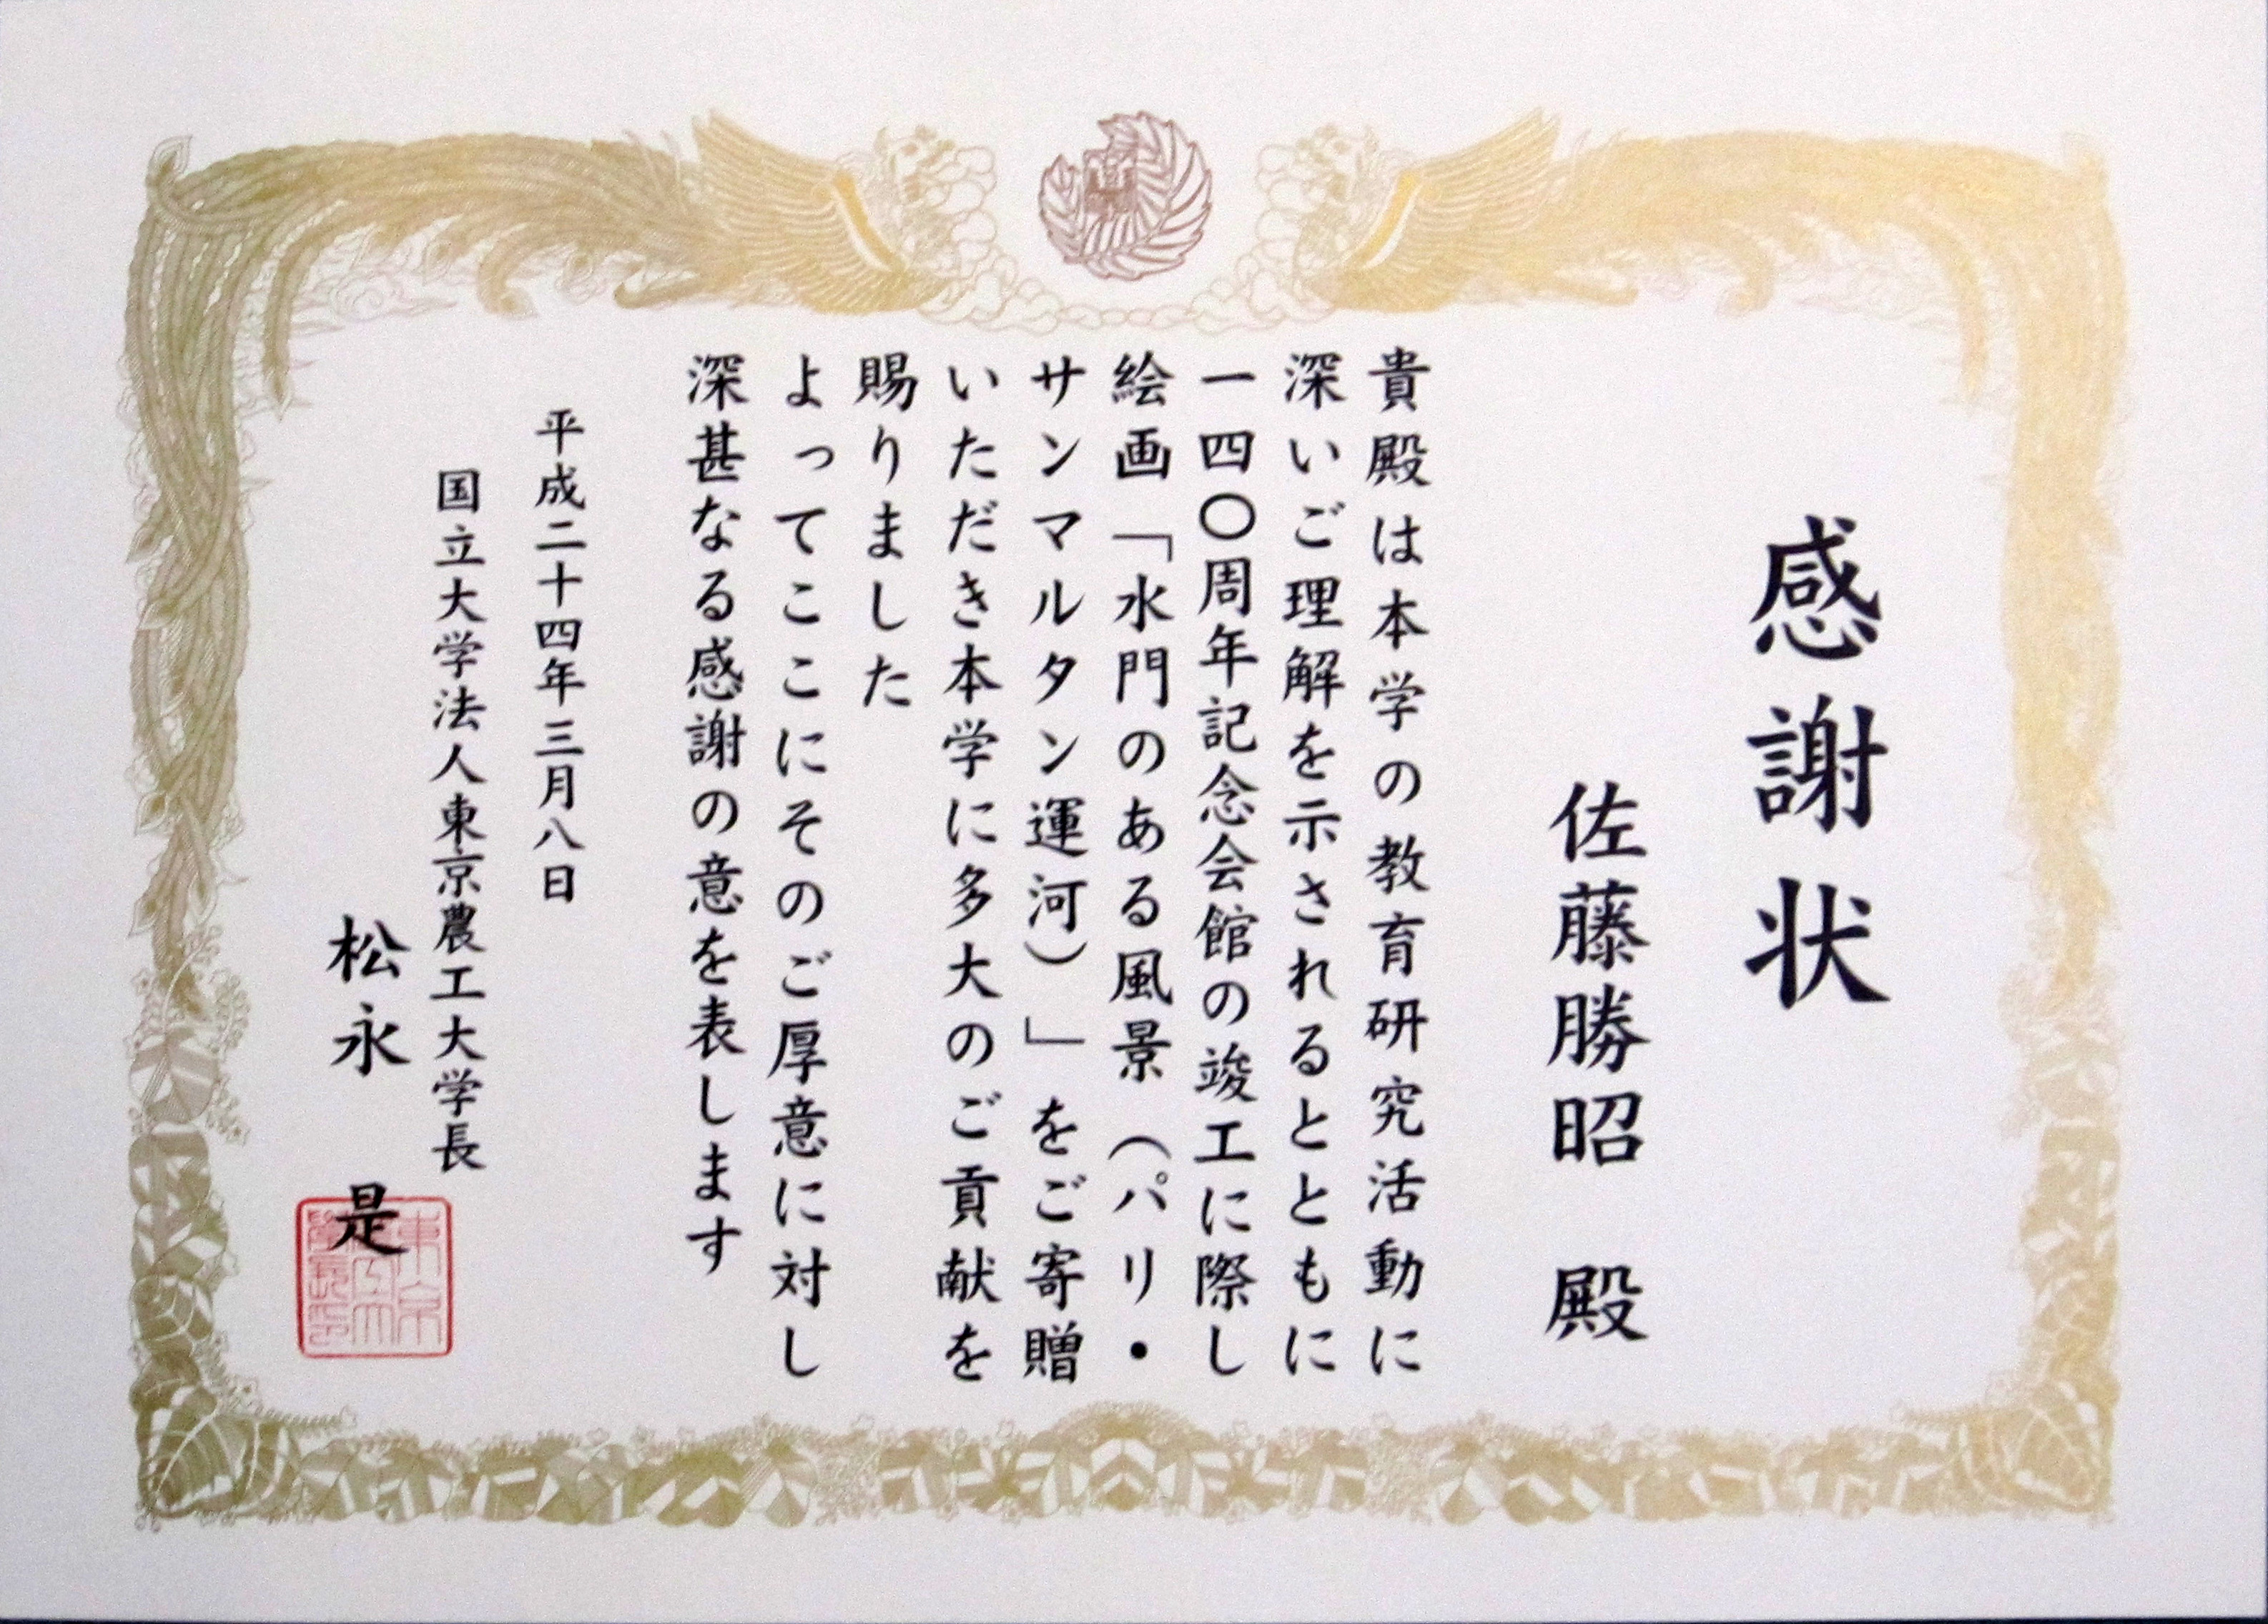 感謝状
佐藤勝昭 殿
貴殿は本学の教育研究活動に
深いご理解を示されるとともに
一四〇周年記念会館の竣工に際し
絵画「水門のある風景（パリ・
サンマルタン運河）」をご寄贈
いただき本学に多大のご貢献を
賜りました
よってここにそのご厚意に対し
深甚なる感謝の意を表します
平成二十四年三月八日
国立大学法人東京農工大学長
松永 是